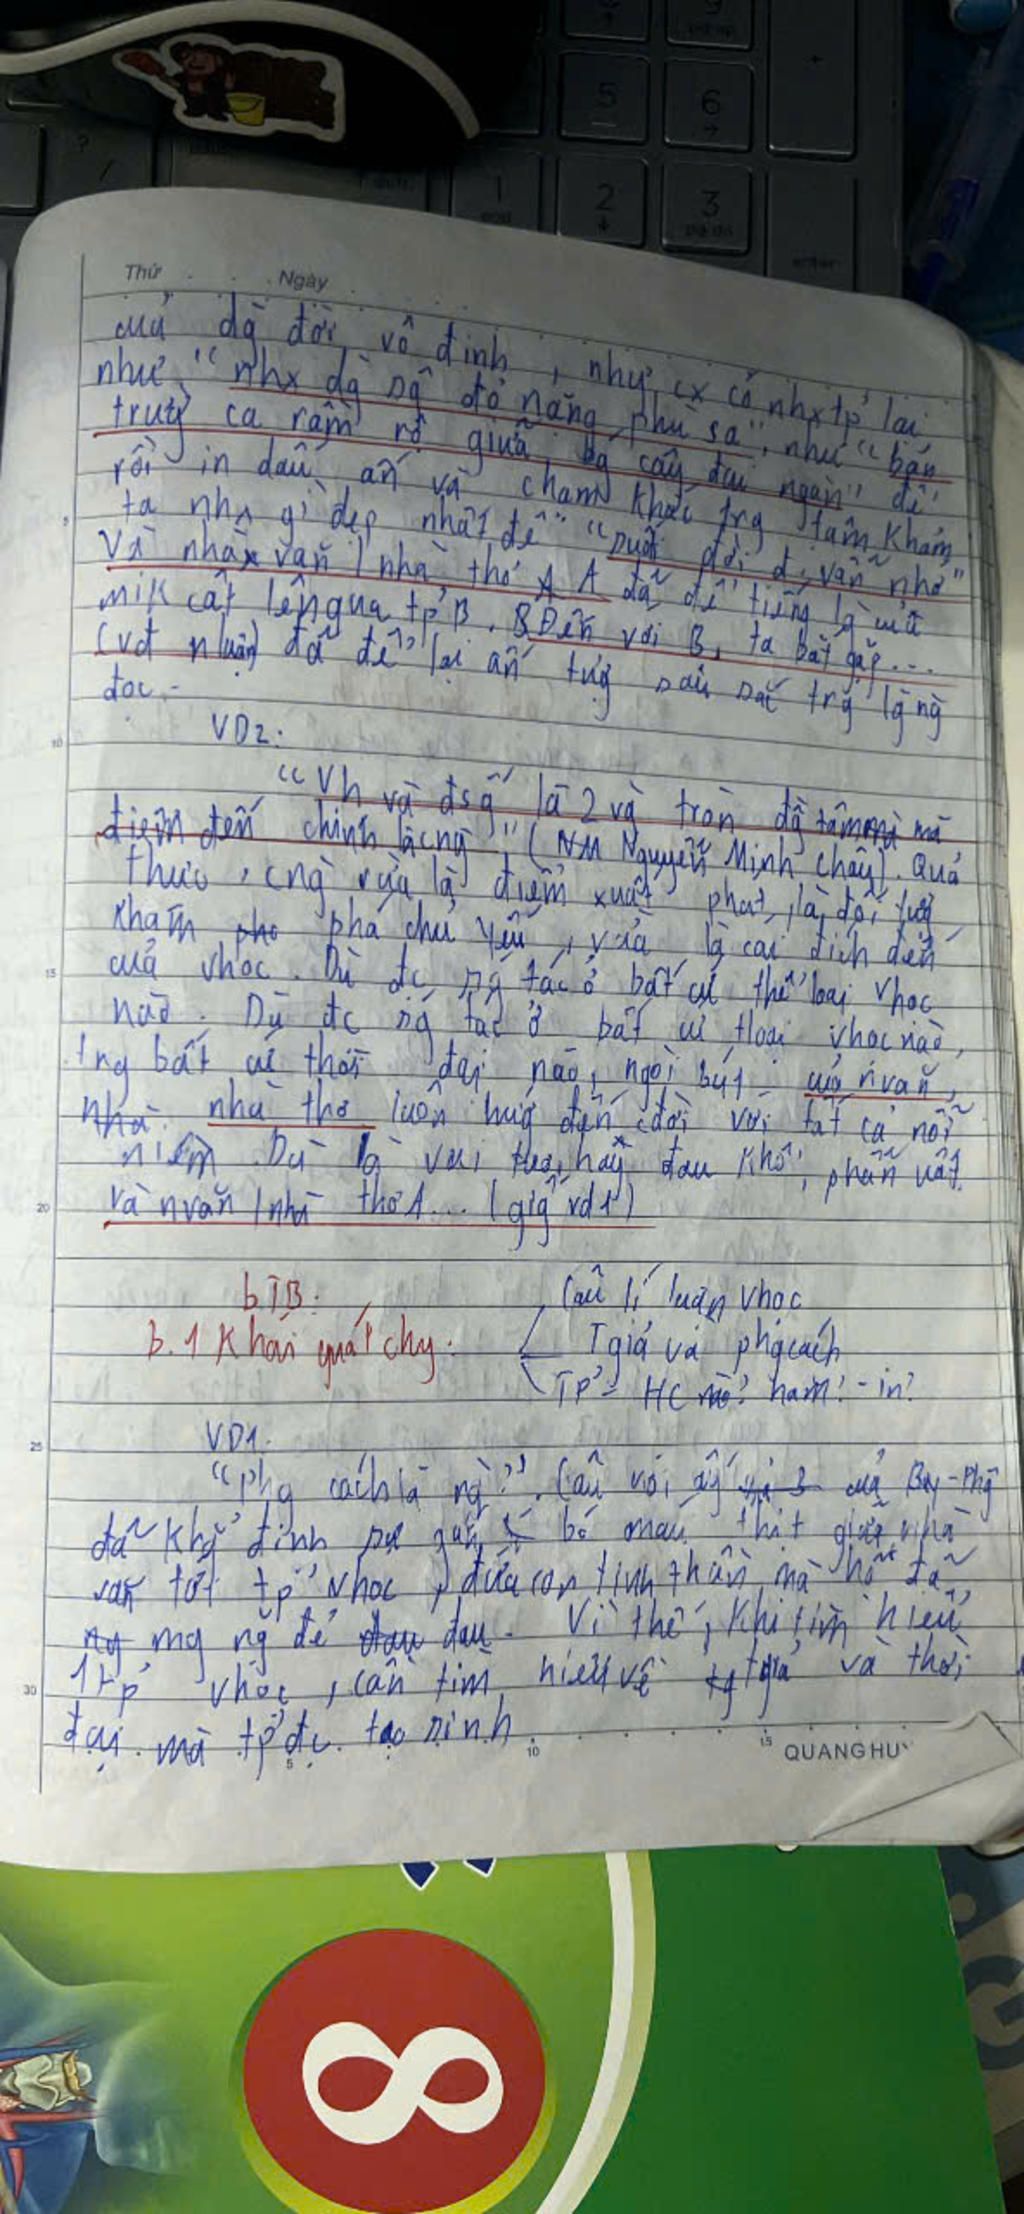 5
6
1
2
3
Thứ Ngày
của dg đời vô định, nhg cx có nhx tp' lại
như "nhx dg sg đỏ nặng phù sa", như "bản
trường ca rầm rộ giữa bg cây đại ngàn" để
rồi in dấu ấn và chạm khắc trg tâm khảm
ta nhx gì đẹp nhất để "suốt đời đi vẫn nhớ"
Và nhà văn / nhà thơ A đã để tiếng lg của
mik cất lên qua tp' B. Đến với B, ta bắt gặp ...
(vđ nluận) đã để lại ấn tượg sâu sắc trg lg ng
đọc.
VD2:
"Vh và đsg là 2 vg tròn đồg tâm mà
điểm đến chính là cng" (NM Nguyễn Minh Châu). Quả
thực, cng vừa là điểm xuất phát, là đối tượg
khám phá chủ yếu, vừa là cái đích đến
của vhọc. Dù đc sg tác ở bất cứ thể loại vhọc
nào. Dù đc sg tác ở bất cứ thloại vhọc nào,
trg bất cứ thời đại nào, ngòi bút của nvăn,
nhà thơ luôn hướg đến cđời với tất cả nỗi
niềm. Dù là vui tươi, hay đau khổ, phẫn uất.
Và nvăn / nhà thơ A... (giốg vd1)
b TB:
b.1 Khái quát chg:
Câu lí luận vhọc
Tgiả và phg cách
TP' - HC nào? năm? - in?
VD1:
"Phg cách là ng". Câu nói ấy của Buy-Phôg
đã khẳg định sự gắn bó máu thịt giữa nhà
văn tới tp' vhọc, đứa con tinh thần mà họ đã
mg ng đẻ đau. Vì thế, khi tìm hiểu
1 tp' vhọc, cần tìm hiểu về tgiả và thời
đại mà tp' đc tạo sinh
5
10
15
20
25
30
5
10
15
QUANGHUY
8